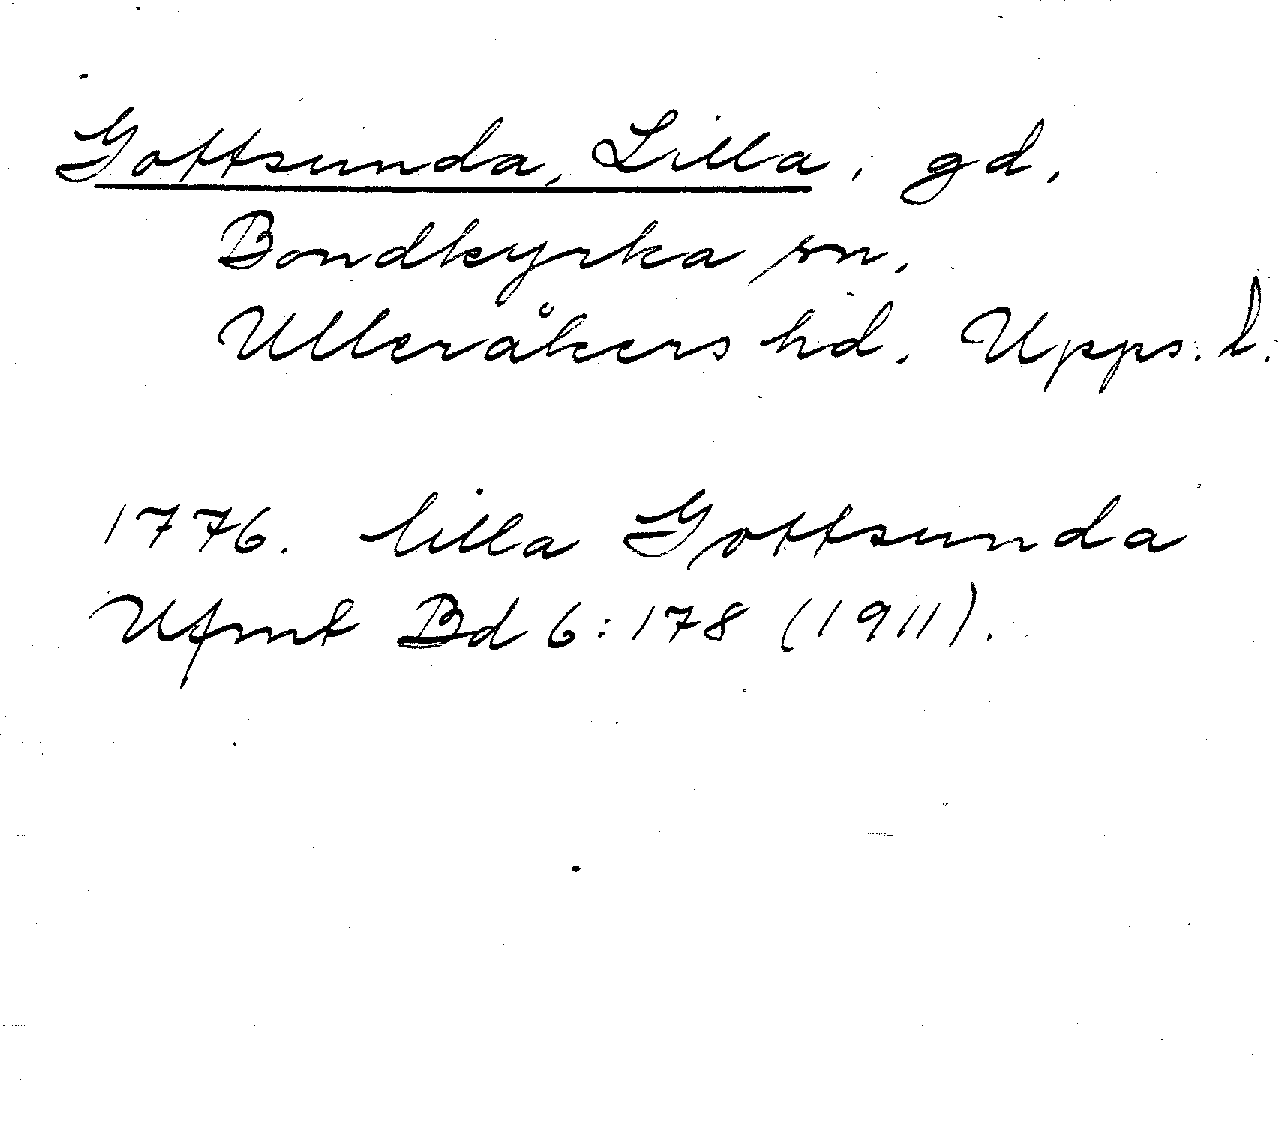 Gottsunda, Lilla, gd,
Bondkyrka sn,
Ulleråkers hd. Upps. l.
1776. lilla Gottsunda
Ufmt Bd 6:178 (1911).